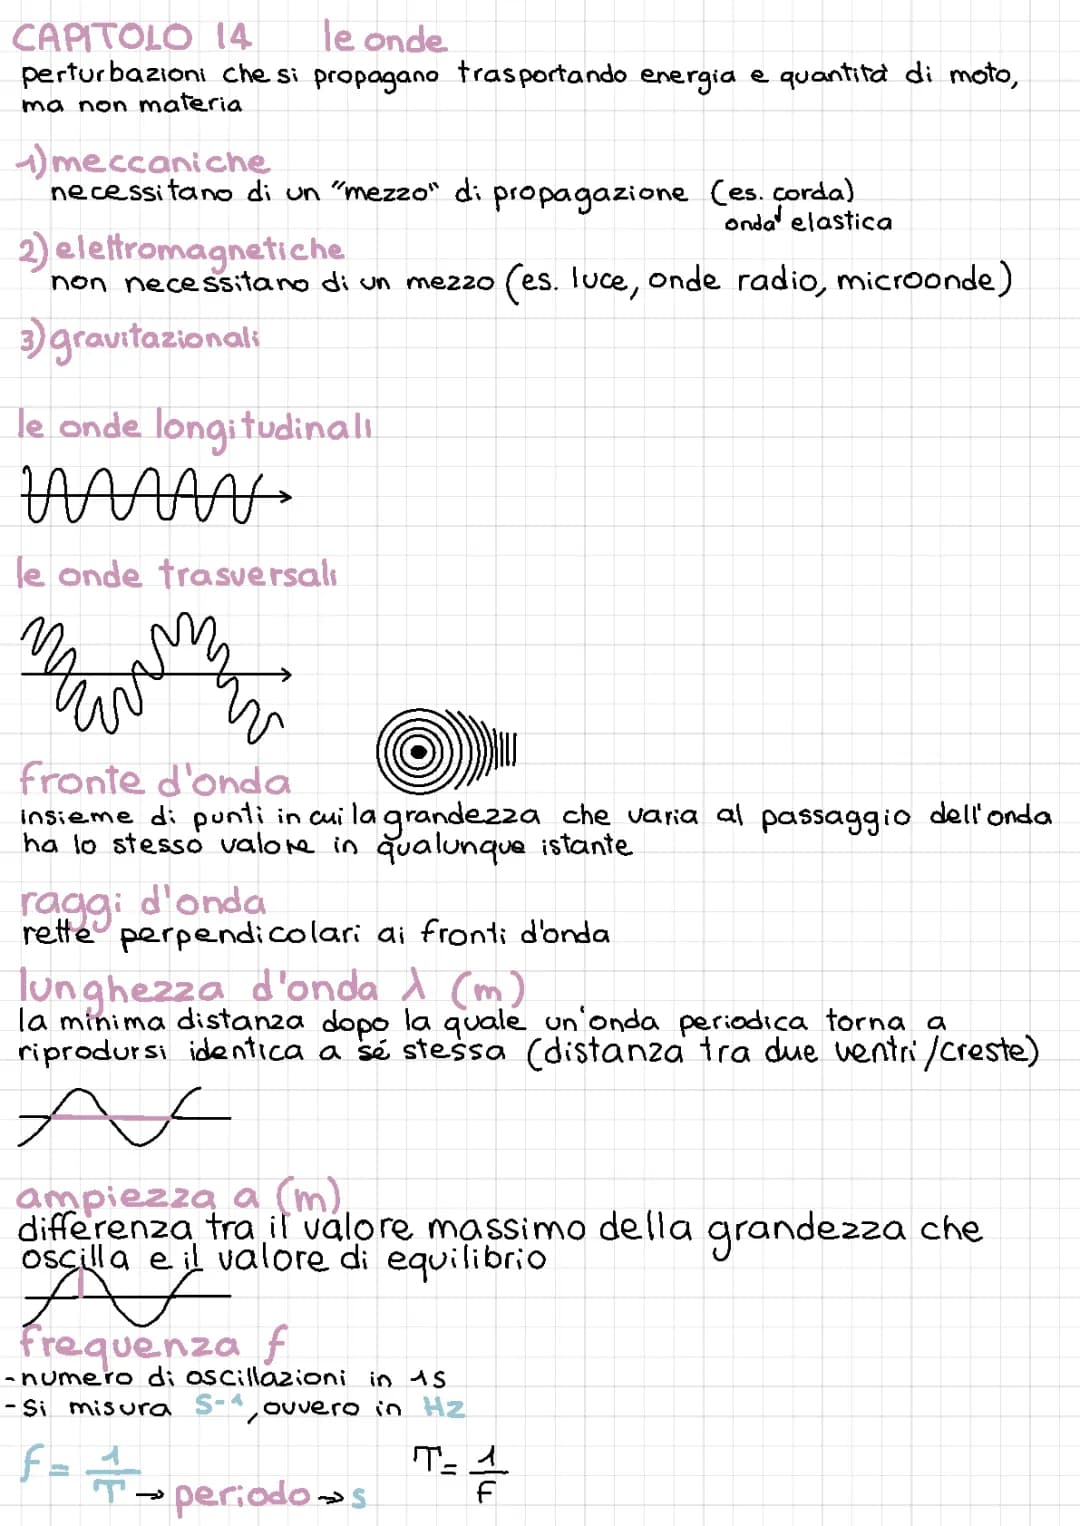 CAPITOLO 14 le onde
perturbazioni che si propagano trasportando energia e quantità di moto,
ma non materia
1) meccaniche
necessitano di un "mezzo" di propagazione (es. corda)
onda elastica
2) elettromagnetiche
non necessitano di un mezzo (es. luce, onde radio, microonde)
3) gravitazionali
le onde longitudinali
le onde trasversali
fronte d'onda
insieme di punti in cui la grandezza che varia al passaggio dell'onda
ha lo stesso valore in qualunque istante
raggi d'onda
rette perpendicolari ai fronti d'onda
lunghezza d'onda λ (m)
la minima distanza dopo la quale un'onda periodica torna a
riprodursi identica a sé stessa (distanza tra due ventri/creste)
ampiezza a (m)
differenza tra il valore massimo della grandezza che
oscilla e il valore di equilibrio
frequenza f
-numero di oscillazioni in 1s
-si misura s-¹, ovvero in Hz
f = 1/T → periodo → s T = 1/f